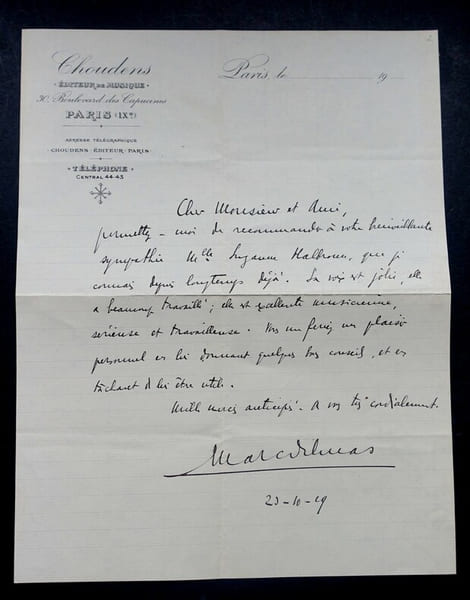 Choudens
ÉDITEUR DE MUSIQUE
30, Boulevard des Capucines
PARIS (IXe)
ADRESSE TÉLÉGRAPHIQUE
CHOUDENS-ÉDITEUR-PARIS
TÉLÉPHONE
CENTRAL 44-43
Paris, le 19
Cher Monsieur et Ami,
permettez-moi de recommander à votre bienveillante
sympathie Mlle Suzanne que je
connais depuis longtemps déjà. Sa voix est jolie, elle
a beaucoup travaillé; elle est excellente musicienne,
sérieuse et travailleuse. Vous me feriez un plaisir
personnel en lui donnant quelques bons conseils, et en
tâchant de lui être utile.
Mille mercis anticipés. A vous très cordialement.
Marc Delmas
23-10-29